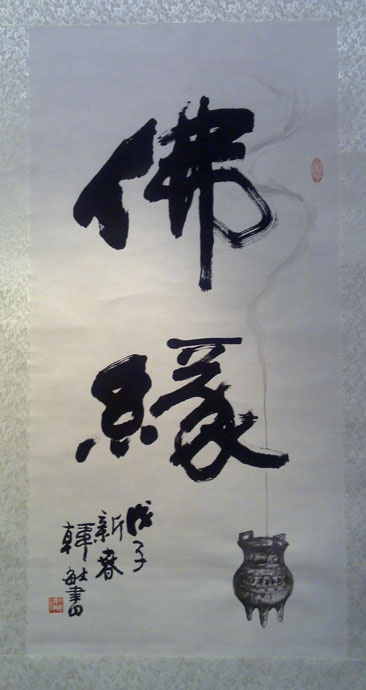 佛緣
戊子
新春
韓敏